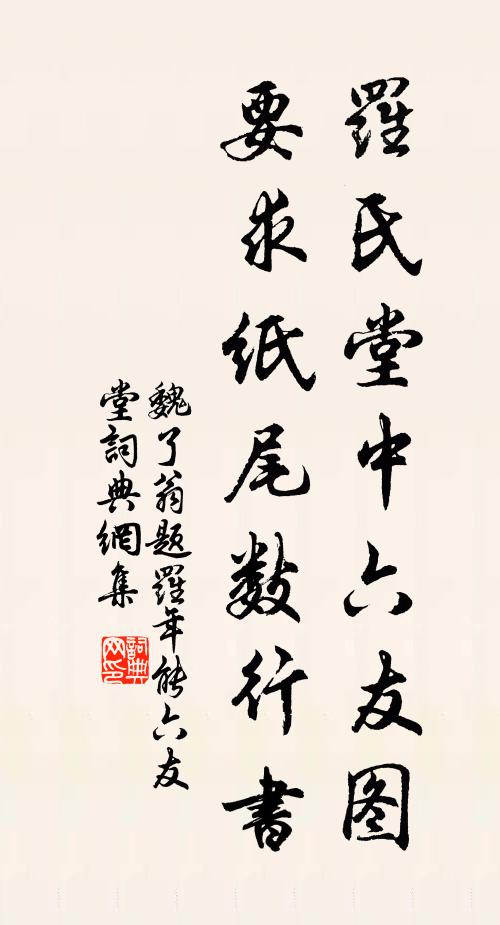 羅氏堂中六友图
要求纸尾数行書
魏了翁题羅年能六友
堂詞典網集
詞典网印